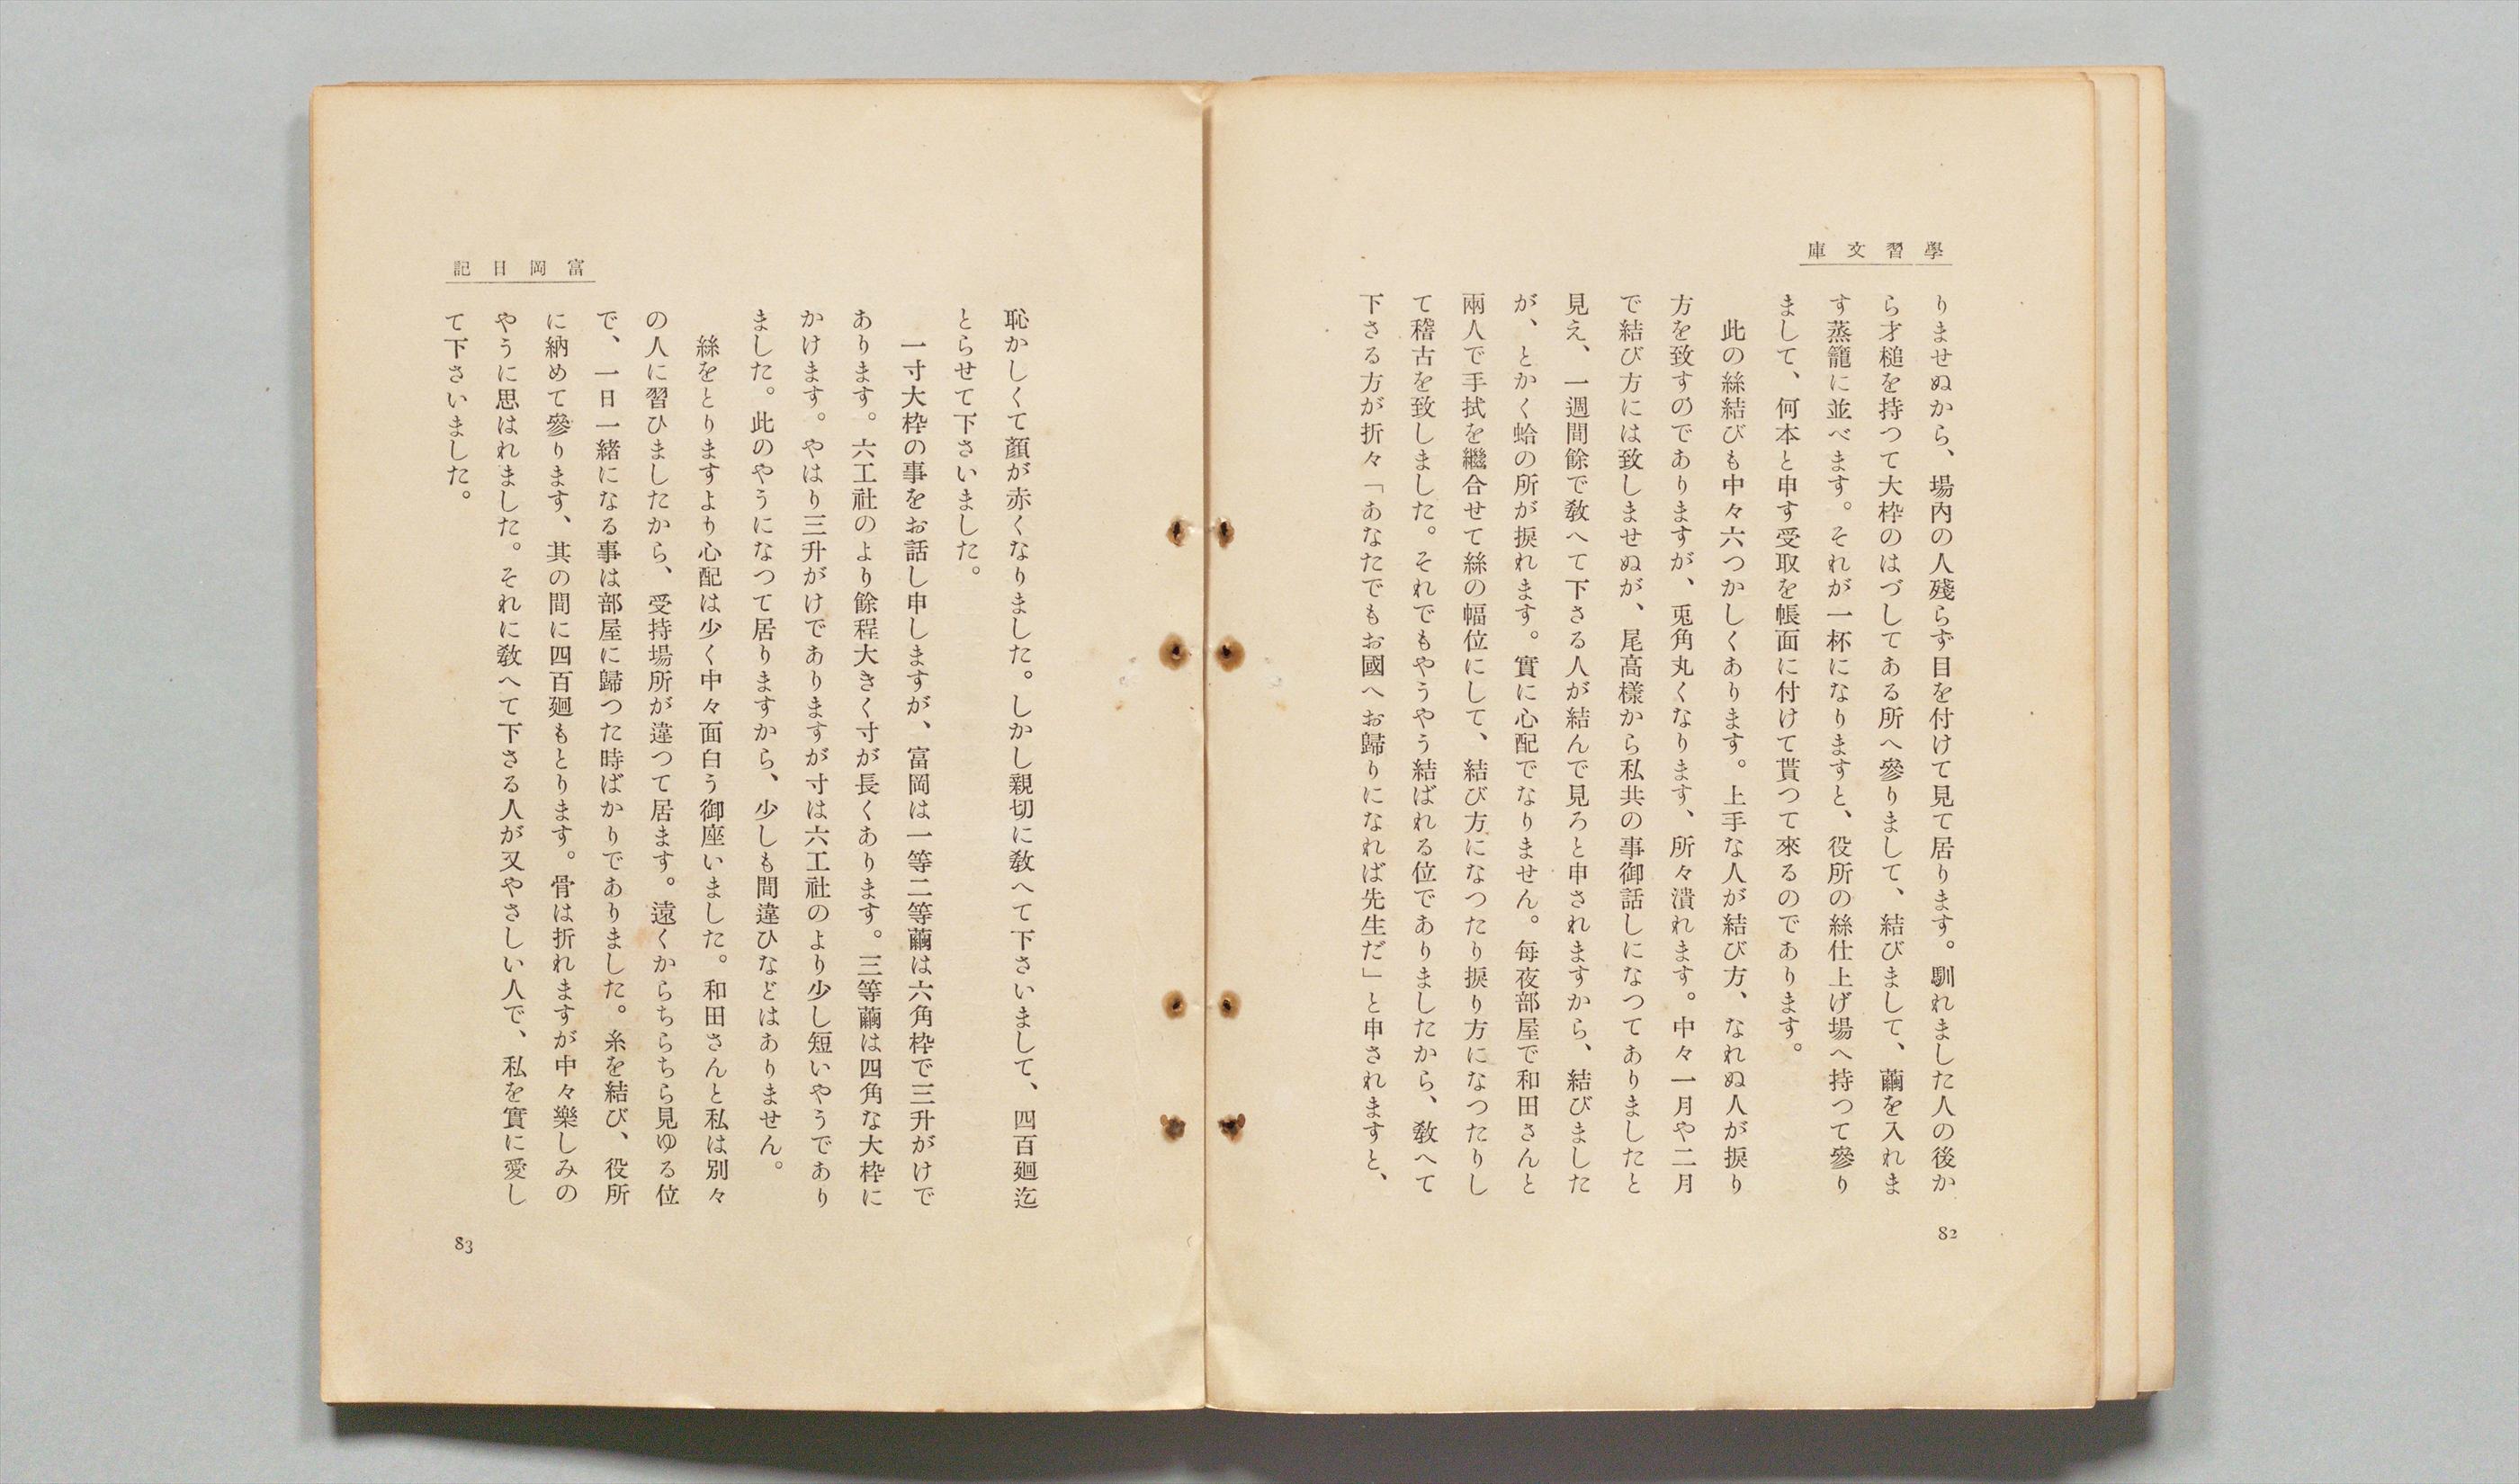 學習文庫
りませぬから、場內の人殘らず目を付けて見て居ります。馴れました人の後か
ら才槌を持つて大枠のはづしてある所へ參りまして、結びまして、繭を入れま
す蒸籠に並べます。それが一杯になりますと、役所の絲仕上げ場へ持つて參り
まして、何本と申す受取を帳面に付けて貰つて來るのであります。
此の絲結びも中々六つかしくあります。上手な人が結び方、なれぬ人が捩り
方を致すのでありますが、兎角丸くなります、所々潰れます。中々一月や二月
で結び方には致しませぬが、尾高樣から私共の事御話しになつてありましたと
見え、一週間餘で敎へて下さる人が結んで見ろと申されますから、結びました
が、とかく蛤の所が捩れます。實に心配でなりません。每夜部屋で和田さんと
兩人で手拭を繼合せて絲の幅位にして、結び方になつたり捩り方になつたりし
て稽古を致しました。それでもやうやう結ばれる位でありましたから、敎へて
下さる方が折々「あなたでもお國へお歸りになれば先生だ」と申されますと、
82
富岡日記
恥かしくて顏が赤くなりました。しかし親切に敎へて下さいまして、四百廻迄
とらせて下さいました。
一寸大枠の事をお話し申しますが、富岡は一等二等繭は六角枠で三升がけで
あります。六工社のより餘程大きく寸が長くあります。三等繭は四角な大枠に
かけます。やはり三升がけでありますが寸は六工社のより少し短いやうであり
ました。此のやうになつて居りますから、少しも間違ひなどはありません。
絲をとりますより心配は少く中々面白う御座いました。和田さんと私は別々
の人に習ひましたから、受持場所が違つて居ます。遠くからちらちら見ゆる位
で、一日一緒になる事は部屋に歸つた時ばかりでありました。糸を結び、役所
に納めて參ります、其の間に四百廻もとります。骨は折れますが中々樂しみの
やうに思はれました。それに敎へて下さる人が又やさしい人で、私を實に愛し
て下さいました。
83